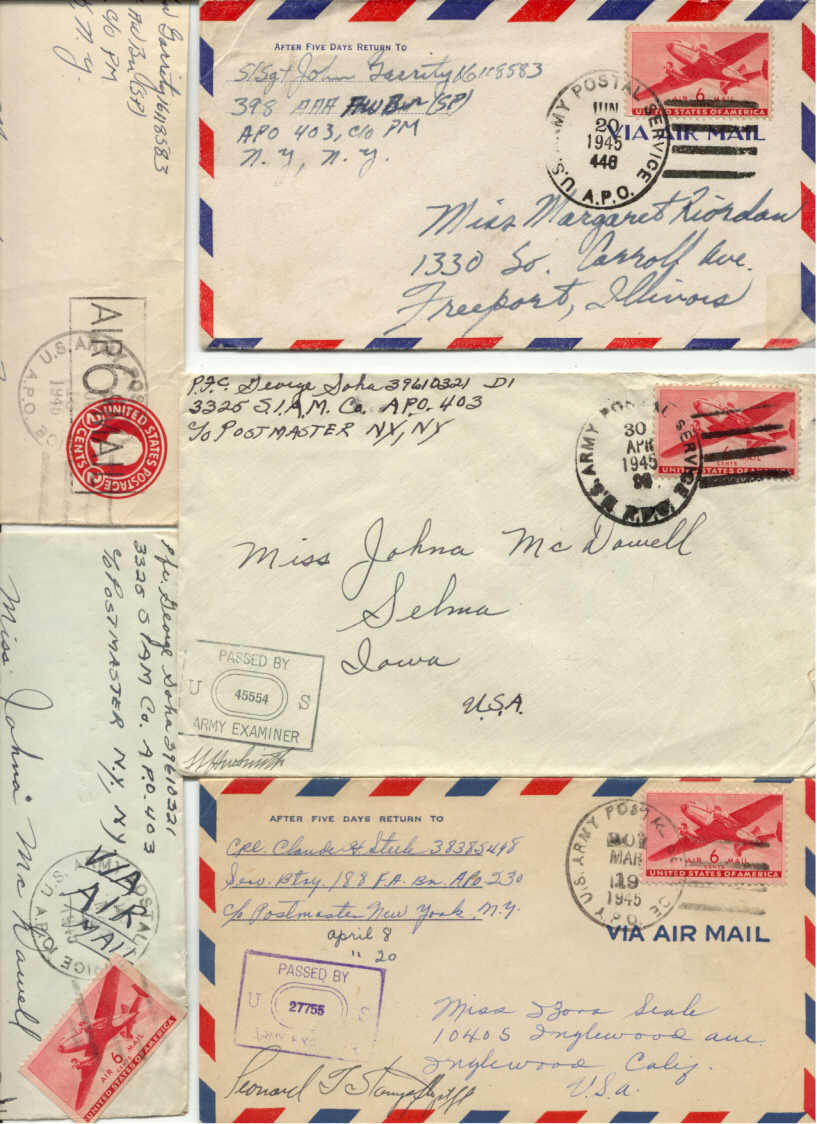 AFTER FIVE DAYS RETURN TO
S/Sgt John Garrity 16118583
398 AAA AW Bn (SP)
APO 403, c/o PM
N.Y, N.Y.
AIR MAIL
6
UNITED STATES OF AMERICA
U.S. ARMY POSTAL SERVICE
JUN
20
1945
A.P.O.
VIA AIR MAIL
Miss Margaret Riordan
1330 So. Carroll Ave.
Freeport, Illinois
Garrity 16118583
AW Bn (SP)
c/o PM
N.Y.
AIR MAIL
6
U.S. ARMY
A.P.O.
UNITED STATES POSTAGE
2 CENTS 2
Pfc. George Soha 39610321 D1
3325 S.I.A.M. Co. A.P.O. 403
c/o POSTMASTER NY, NY
U.S. ARMY POSTAL SERVICE
30
APR
1945
UNITED STATES OF AMERICA
Miss Johna McDowell
Selma
Iowa
U.S.A.
PASSED BY
U 45554 S
ARMY EXAMINER
Pfc. George Soha 39610321
3325 SIAM Co. A.P.O. 403
c/o POSTMASTER N.Y, NY
VIA
AIR
MAIL
U.S. ARMY POSTAL SERVICE
A.P.O.
Miss Johna McDowell
6
AIR MAIL
UNITED STATES OF AMERICA
AFTER FIVE DAYS RETURN TO
Cpl. Claude H Steele 38385498
Serv. Btry. 188 F.A. Bn. APO 230
c/o Postmaster New York, N.Y.
April 8
" 20
U.S. ARMY POSTAL
MAR
19
1945
6
UNITED STATES OF AMERICA
VIA AIR MAIL
PASSED BY
U 27755 S
Miss Zora Seale
10405 Inglewood ave.
Inglewood Calif.
U.S.a.